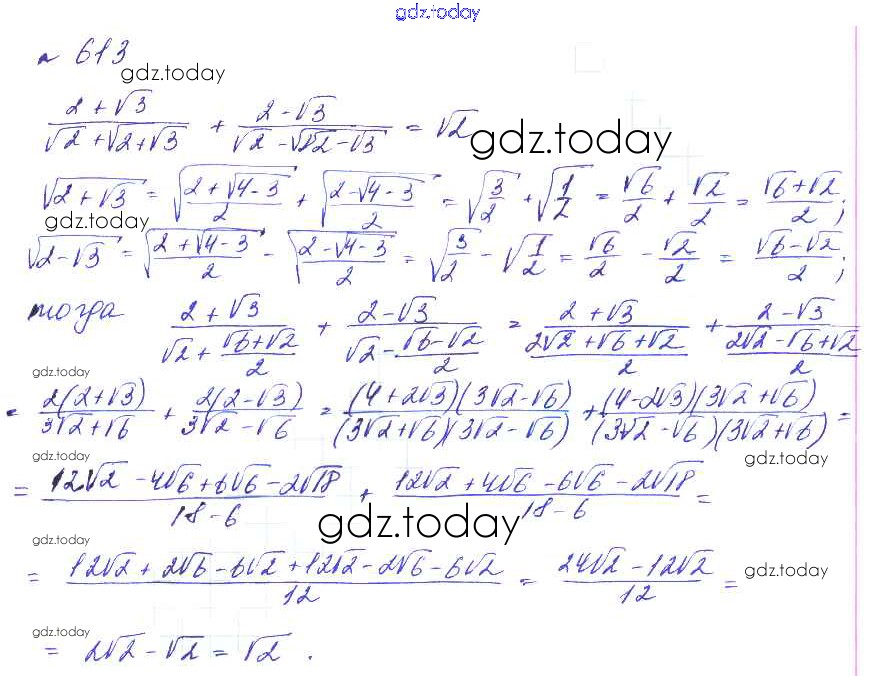 gdz.today
№ 613
gdz.today
(2+√3)/(√2+√(2+√3)) + (2-√3)/(√2-√(2-√3)) = √2
gdz.today
√(2+√3) = √((2+√(4-3))/2) + √((2-√(4-3))/2) = √(3/2) + √(1/2) = √6/2 + √2/2 = (√6+√2)/2;
gdz.today
√(2-√3) = √((2+√(4-3))/2) - √((2-√(4-3))/2) = √(3/2) - √(1/2) = √6/2 - √2/2 = (√6-√2)/2;
тогда (2+√3)/(√2+(√6+√2)/2) + (2-√3)/(√2-(√6-√2)/2) = (2+√3)/((2√2+√6+√2)/2) + (2-√3)/((2√2-√6+√2)/2)
gdz.today
= 2(2+√3)/(3√2+√6) + 2(2-√3)/(3√2-√6) = (4+2√3)(3√2-√6)/((3√2+√6)(3√2-√6)) + (4-2√3)(3√2+√6)/((3√2-√6)(3√2+√6)) =
gdz.today gdz.today
= (12√2-4√6+6√6-2√18)/(18-6) + (12√2+4√6-6√6-2√18)/(18-6) =
gdz.today
gdz.today
= (12√2+2√6-6√2+12√2-2√6-6√2)/12 = (24√2-12√2)/12 =
gdz.today
gdz.today
= 2√2-√2 = √2.